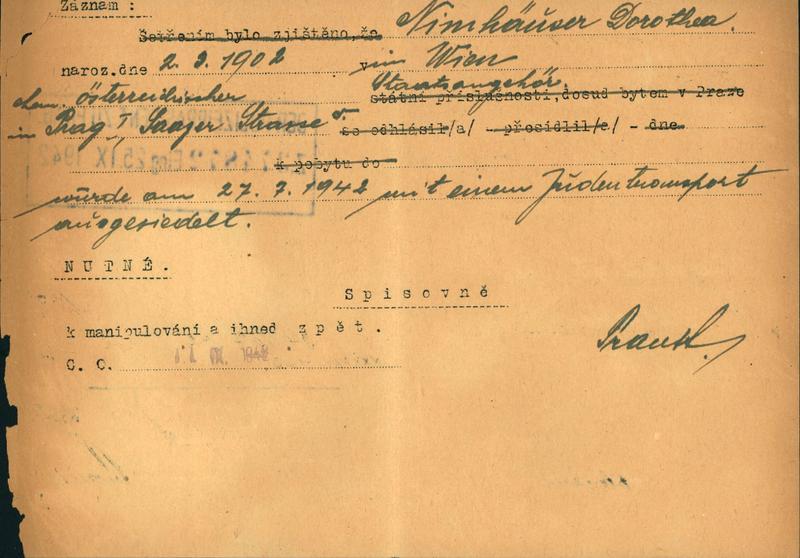 Záznam :
Šetřením bylo zjištěno,že Nimhäuser Dorothea.
naroz.dne 2. 9. 1902 in Wien
ehem. österreichischer Staatsangehör.
státní příslušnosti,dosud bytem v Praze
in Prag I, Saazer Strasse
se odhlásil/a/ - přesídlil/a/ - dne
k pobytu do
wurde am 27. 7. 1942 mit einem Judentransport
ausgesiedelt.
NUTNÉ.
Spisovně
k manipulování a ihned zpět.
C. O. 1942